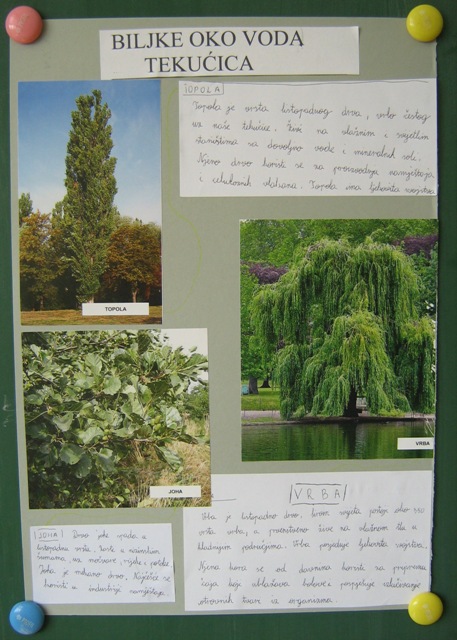 BILJKE OKO VODA
TEKUĆICA
TOPOLA
Topola je vrsta listopadnog drva, vrlo častog
uz naše tekućice. Živi na vlažnim i svijetlim
staništima sa dovoljno vode i mineralnih soli.
Njeno drvo koristi se za proizvodnju namještaja
i celuloznih vlakana. Topola ima ljekovita svojstva
TOPOLA
JOHA
VRBA
VRBA
Vrba je listopadno drvo. Širom svijeta postoji oko 350
vrsta vrba, a prvenstveno žive na vlažnom tlu u
hladnijim područjima. Vrba posjeduje ljekovita svojstva.
Njena kora se od davnina koristi za pripremu
čaja koje ublažava bolove i pospješuje izlučivanje
otrovnih tvari iz organizma.
JOHA Drvo joha spada u
listopadne vrste. Raste u nizinskim
šumama, uz močvare, rijeke i potoke.
Joha je mekano drvo. Najčešće se
koristi u industriji namještaja.